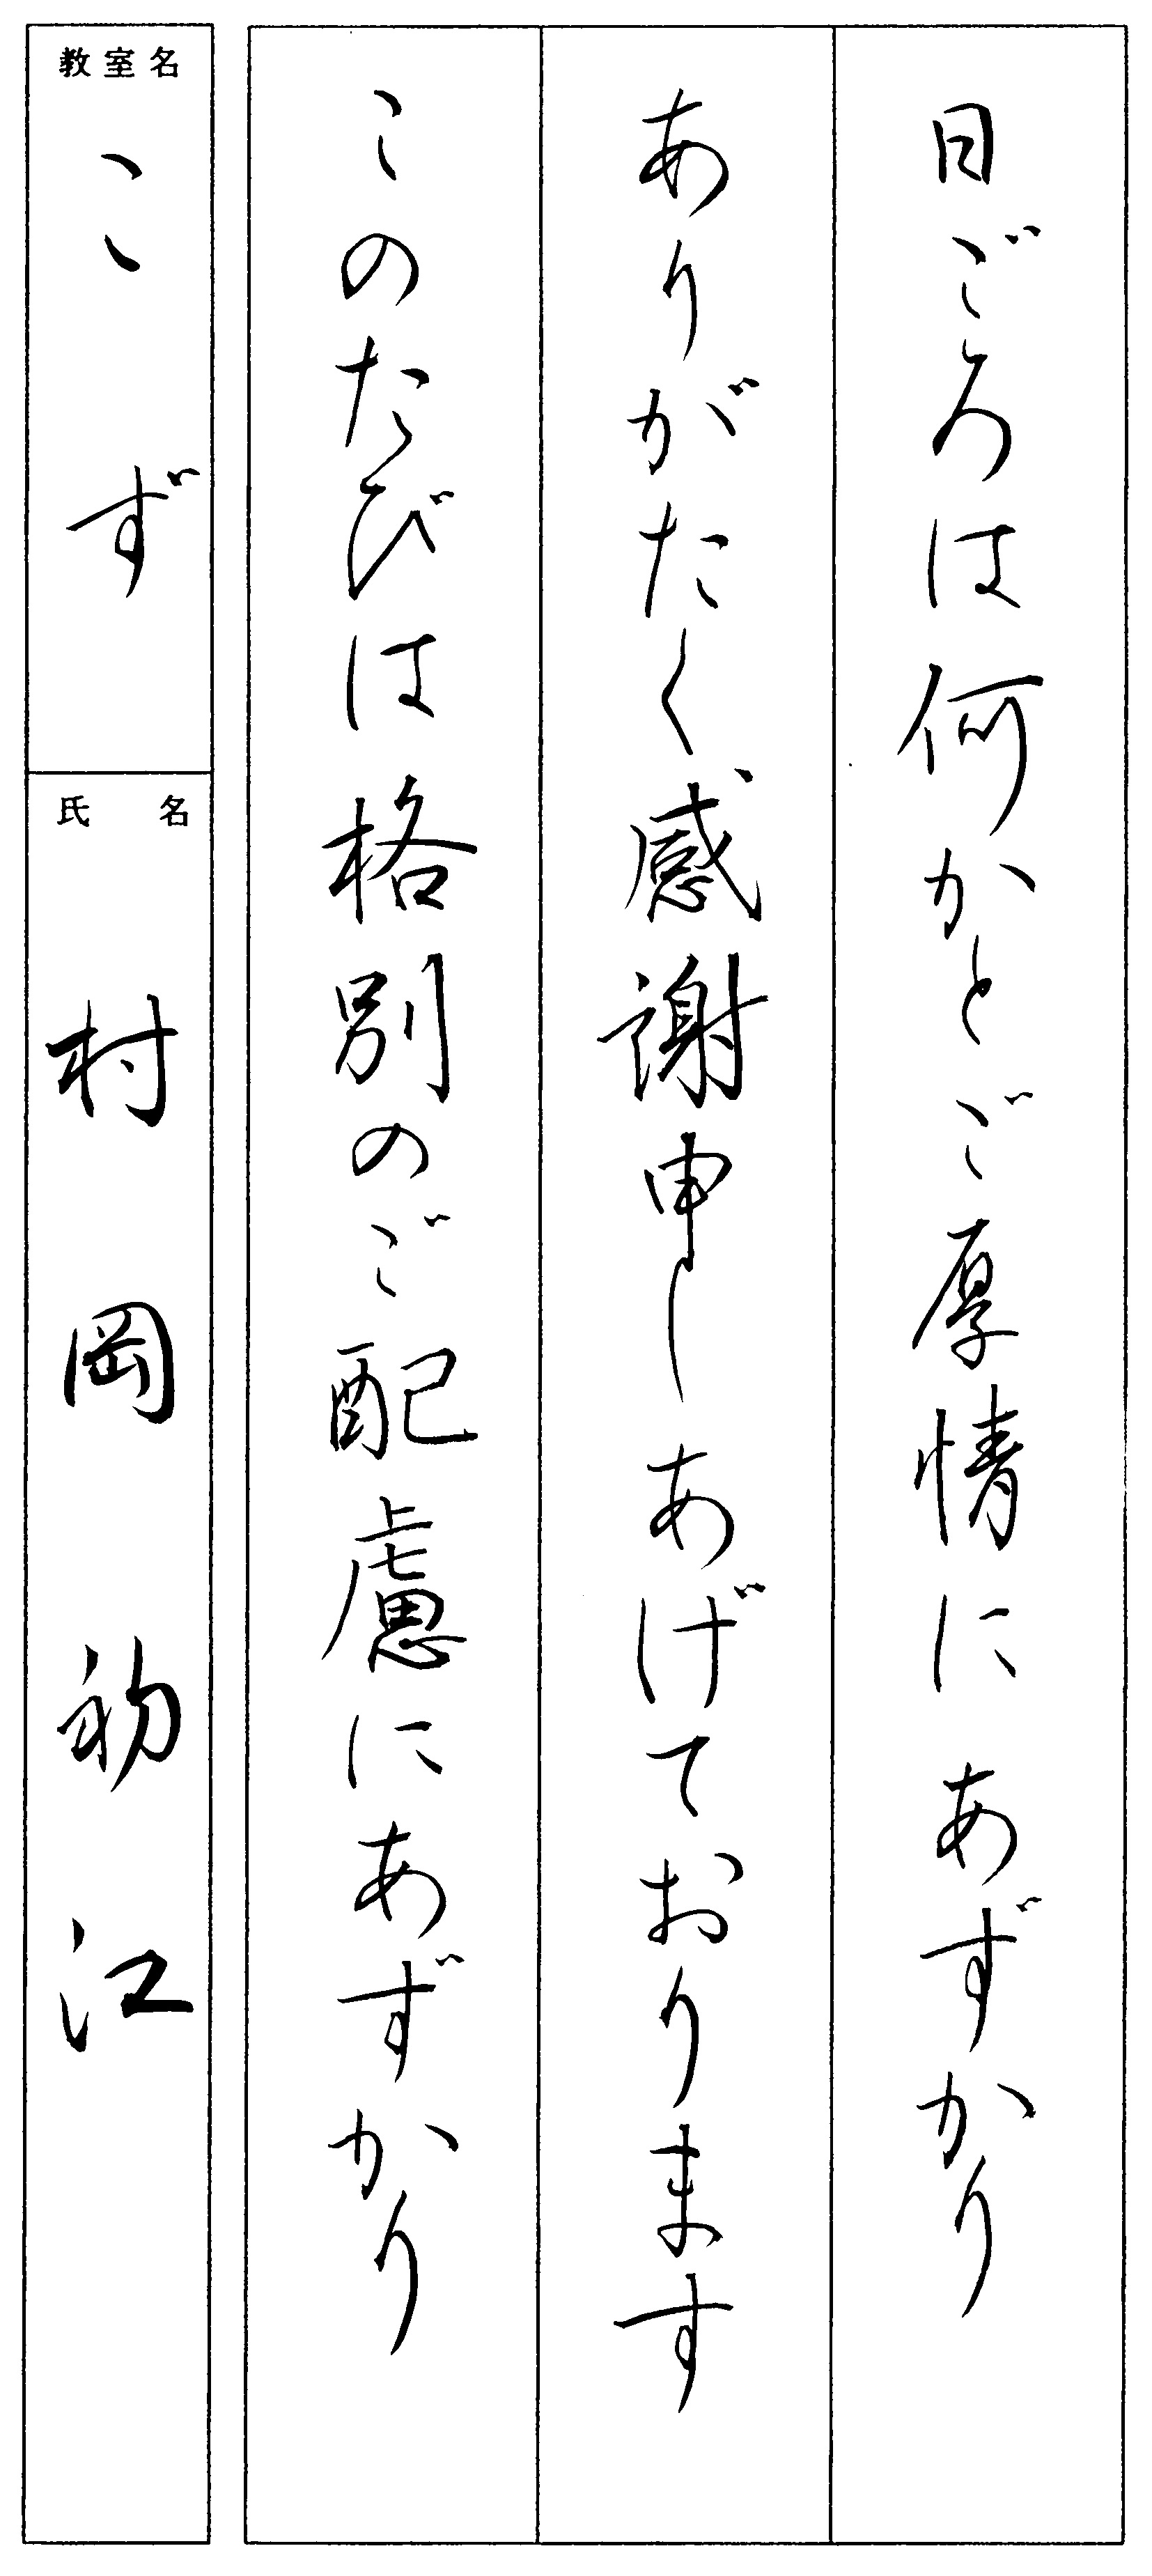 日ごろは何かとご厚情にあずかり
ありがたく感謝申しあげております
このたびは格別のご配慮にあずかり
教室名
こず
氏名
村岡初江